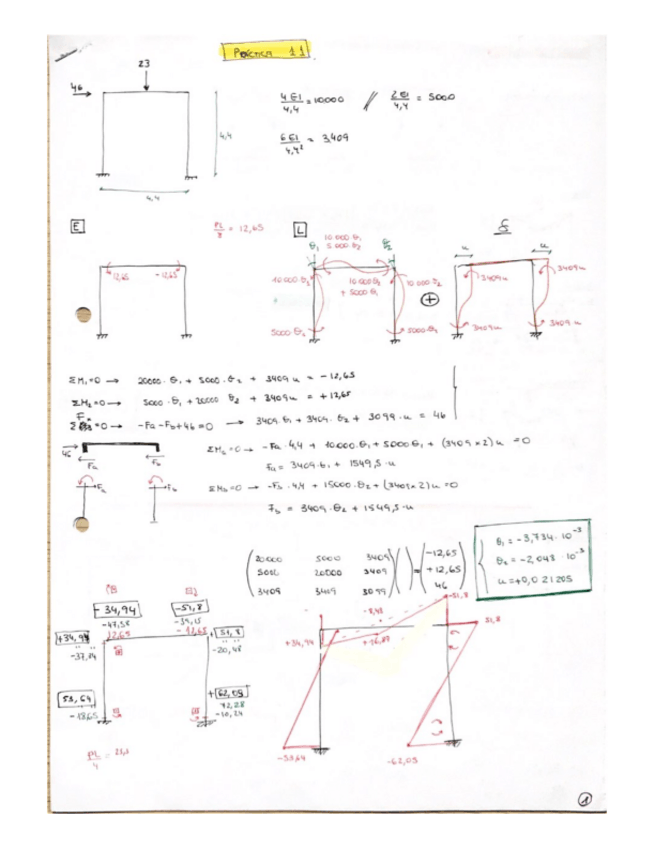 PRÁCTICA 11
23
46
4,4
4,4
4EI/4,4 = 10.000 // 2EI/4,4 = 5000
6EI/4,4² = 3,409
E
PL/8 = 12,65
L
δ
10.000 θ₁
5.000 θ₂
θ₁
θ₂
u
u
12,65
-12,65
10.000 θ₂
+ 5000 θ₁
10.000 θ₂
3409u
3409u
3409u
+
ΣM₁=0 → 20000·θ₁ + 5000·θ₂ + 3409u = -12,65
ΣM₂=0 → 5000·θ₁ + 20000 θ₂ + 3409u = +12,65
=0 → -Fa - Fb + 46 = 0 → 3409·θ₁ + 3409·θ₂ + 3099·u = 46
46
Fa
Fb
ΣMa=0 → -Fa·4,4 + 10000·θ₁ + 5000θ₁ + (3409×2)u = 0
Fa = 3409·θ₁ + 1549,5·u
Fa
Fb
ΣMb=0 → -Fb·4,4 + 15000·θ₂ + (3409×2)u = 0
Fb = 3409·θ₂ + 1549,5·u
20000 5000 3409
5000 20000 3409
3409 3409 3099
=
-12,65
+12,65
46
θ₁ = -3,734·10⁻³
θ₂ = -2,048·10⁻³
u = +0,021205
-34,94
-51,8
-47,58
-39,15
12,65
-12,65
+34,94
+51,8
-20,48
53,64
-18,65
+62,05
72,28
-10,24
PL/4 =
-51,8
-8,43
51,8
+34,94
+16,87
-53,64
-62,05
1